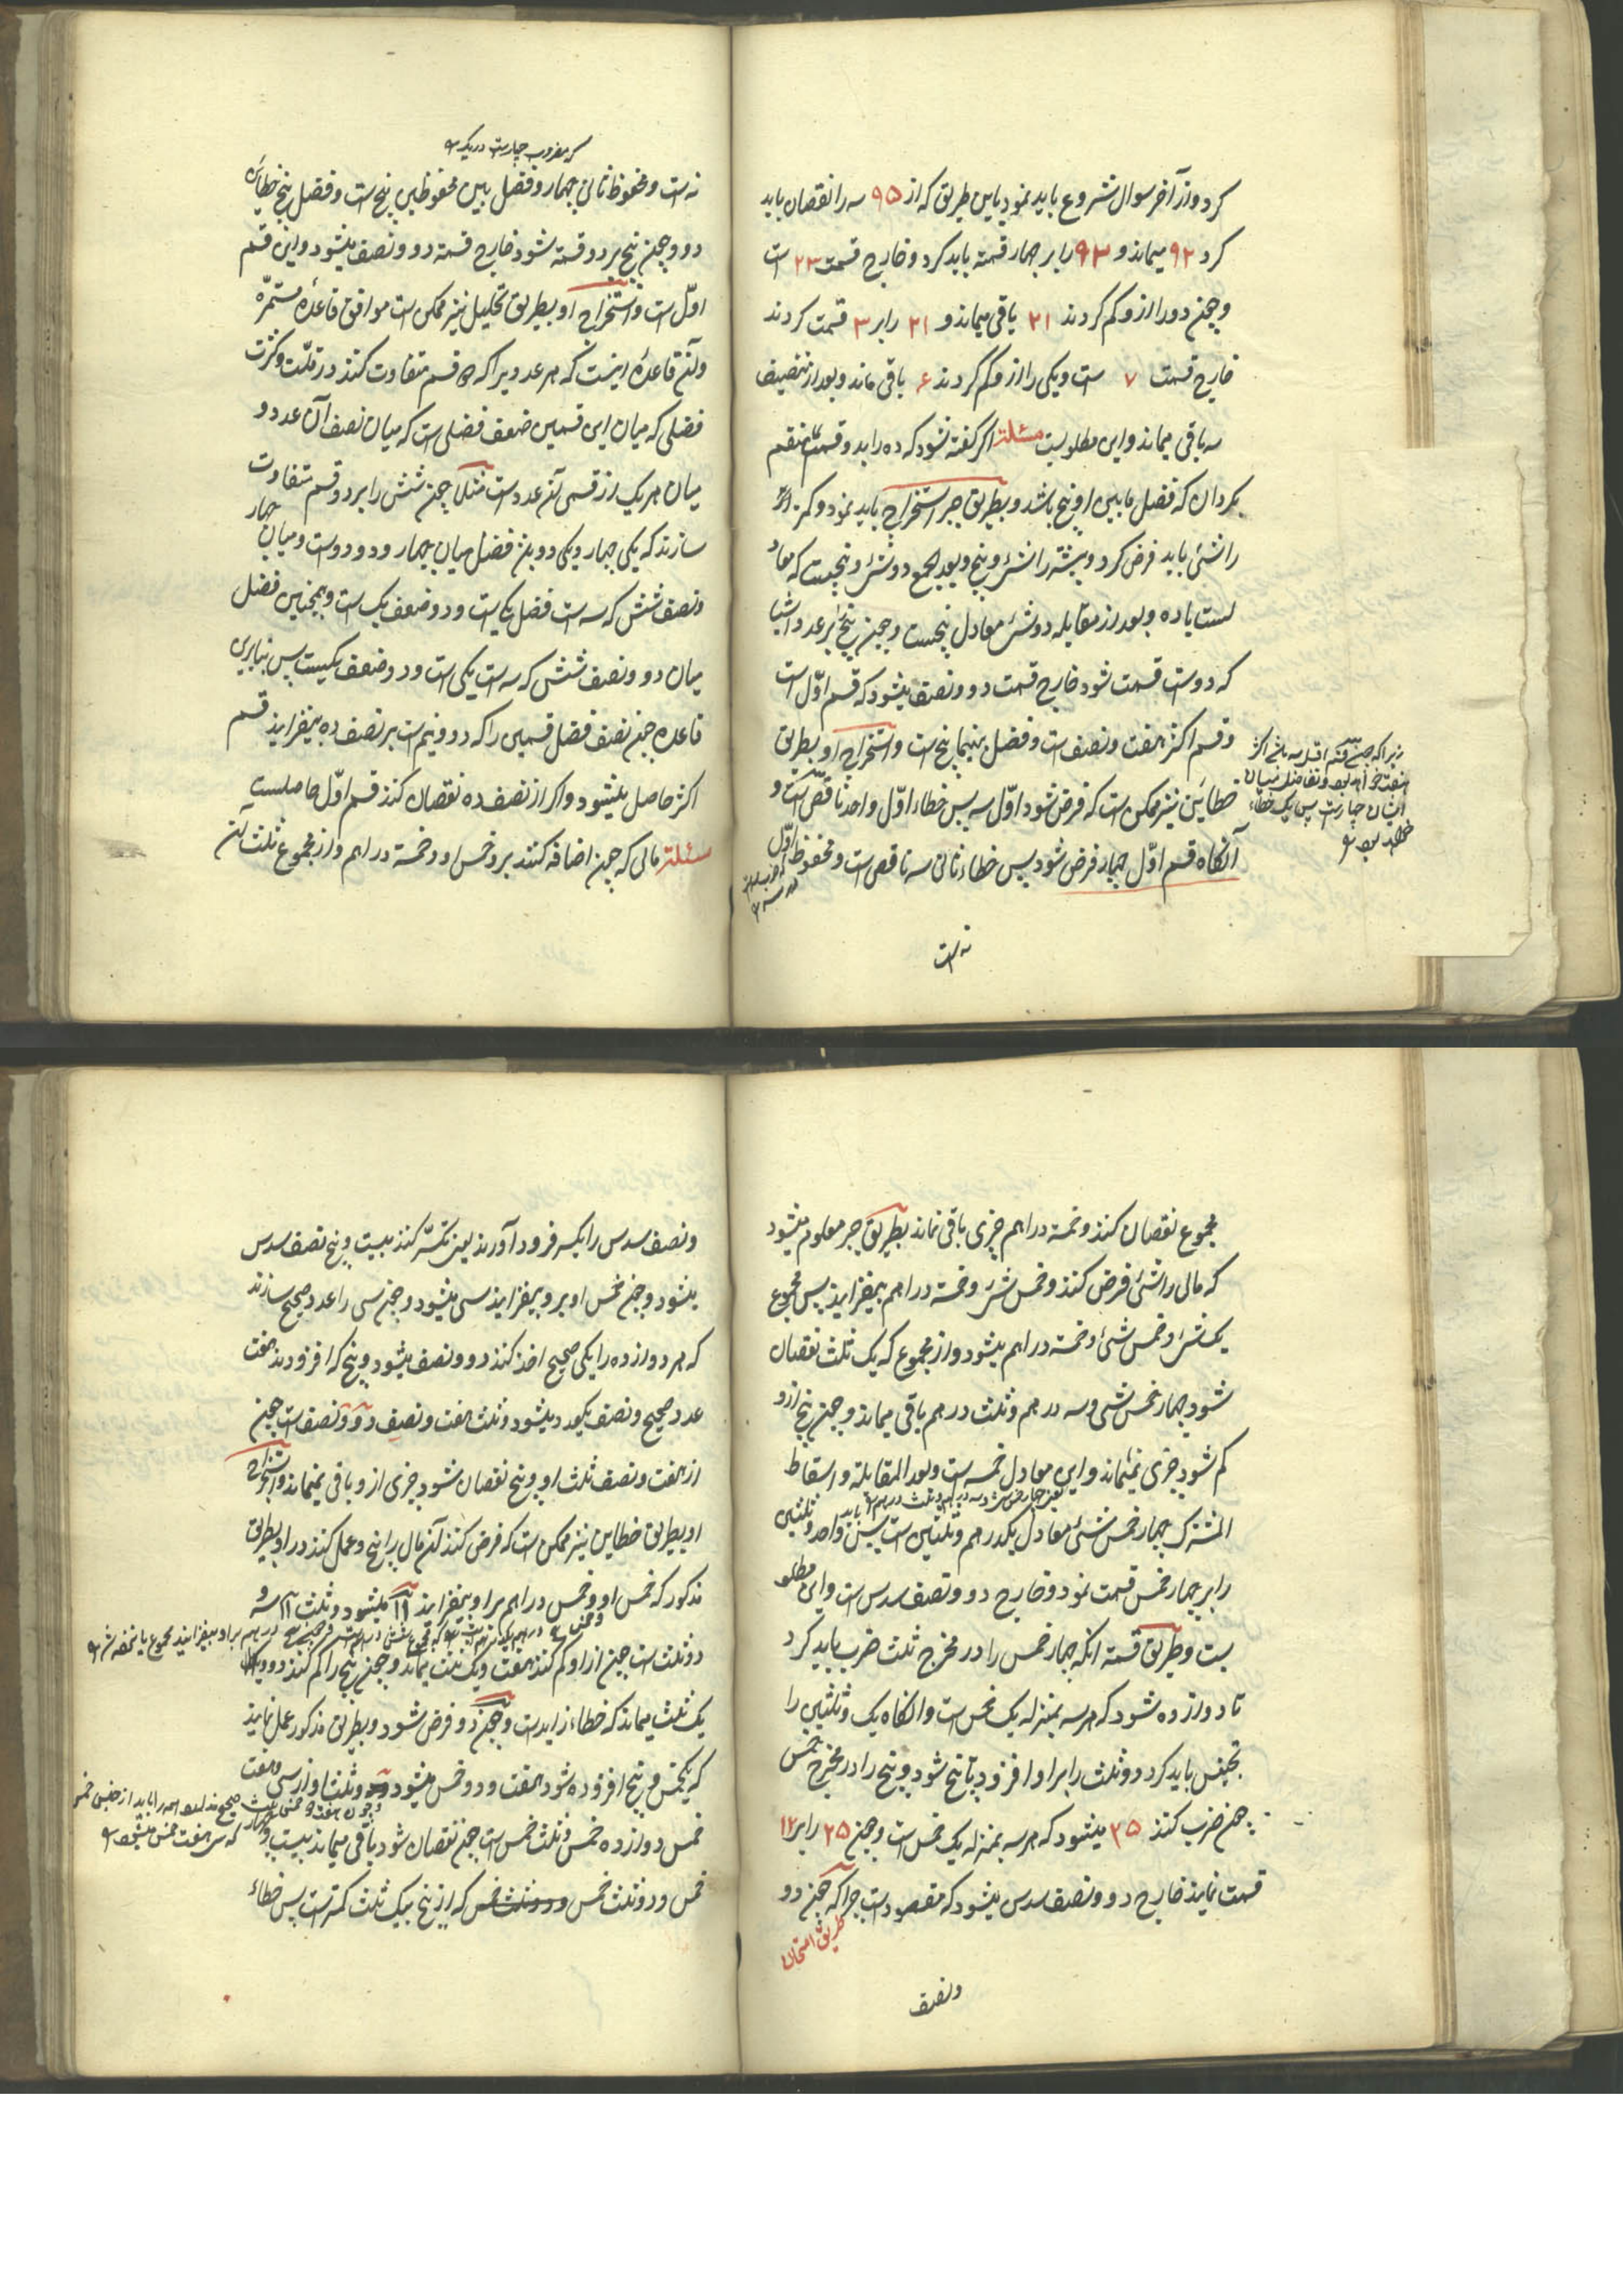 کرد و از آخر سوال شروع باید نمود باین طریق که از ۹۵ سه را نقصان باید
کرد ۹۲ میماند و ۹۲ را بر چهار قسمة باید کرد و خارج قسمت ۲۳ است
و چون دو را ازو کم کردند ۲۱ باقی میماند و ۲۱ را بر ۳ قسمت کردند
خارج قسمت ۷ است و یکی را ازو کم کردند ۶ باقی ماند و بعد از تنصیف
سه باقی میماند و این مطلوبست مسئلة اگر گفته شود که ده را بدو قسمت منقسم
بگردان که فضل مابین او پنج باشد و بطریق جبر استخراج باید نمود و کمتر
را شئی باید فرض کرد و بیشتر را شئ و پنج و بعد الجمع دو شئ و پنجست که معاد
لست با ده و بعد از مقابله دو شئ معادل پنجست و چون پنج بر عدد اشیا
که دوست قسمت شود خارج قسمت دو و نصف میشود که قسم اوّل است
و قسم اکثر هفت و نصفست و فضل بینهما پنج است و استخراج او بطریق
خطائین نیز ممکن است که فرض شود اوّل سه پس خطاء اوّل واحد ناقص است و
آنگاه قسم اوّل چهار فرض شود پس خطاء ثانی سه ناقص است و محفوظ اوّل
زیرا که چون قسم اقل سه باشد اکثر
هفت خواهد بود و تفاضل میان
ایشان چهارست پس یک خطاء
خواهد بود
نه است
که مضروب چهارست در یک
نه است و محفوظ ثانی چهار و فضل بین محفوظین پنج است و فضل بین خطائین
دو و چون پنج بر دو قسمة شود خارج قسمة دو و نصف میشود و این قسم
اوّل است و استخراج او بطریق تحلیل نیز ممکن است موافق قاعدهٔ مستمرّه
و آن قاعده اینست که هر عددیرا که دو قسم متفاوت کنند در قلّت و کثرت
فضلی که میان این قسمین ضعف فضلی است که میان نصف آن عدد و
میان هر یک از قسمی آن عدد است مثلا چون شش را بر دو قسم متفاوت
سازند که یکی چهار و یکی دو بلند فضل میان چهار و دو دوست و میان چهار
و نصف شش که سه است فضل یکیست و دو ضعف یک است و همچنین فضل
میان دو و نصف شش که سه است یکی است و دو ضعف یکیست پس بنابرین
قاعده چون نصف فضل قسمین را که دو و نیم است بر نصف ده بیفزایند قسم
اکثر حاصل میشود و اگر از نصف ده نقصان کنند قسم اوّل حاصلست
مسئلة مالی که چون اضافه کنند برو خمس او و خمسة دراهم و از مجموع ثلث آن
مجموع نقصان کنند و خمسة دراهم چیزی باقی نماند بطریق جبر معلوم میشود
که مالی را شئی فرض کنند و خمس شئ و خمسة دراهم بیفزایند پس مجموع
یک شئ و خمس شئ و خمسة دراهم میشود و از مجموع که یک ثلث نقصان
شود چهار خمس شئی و سه درهم و ثلث درهم باقی میماند و چون پنج ازو
کم شود چیزی نمیماند و این معادل خمسه است و بعد المقابلة و اسقاط
المشترک چهار خمس شئ معادل یکدرهم و ثلثین است پس واحد و ثلثین
را بر چهار خمس قسمت نمود و خارج دو و نصف سدس است و این مطلو
بست و طریق قسمة آنکه چهار خمس را در مخرج ثلث ضرب باید کرد
تا دوازده شود که هر سه بمنزله یک خمس است و آنگاه یک و ثلثین را
تجنیس باید کرد و دو ثلث را بر او افزود تا پنج شود و پنج را در مخرج خمس
چون ضرب کنند ۲۵ میشود که هر سه بمنزله یک خمس است و چون ۲۵ را بر ۱۲
قسمت نمایند خارج دو و نصف سدس میشود که مقصودست چرا که چون دو
طریق امتحان
و نصف
و نصف سدس را بکسر فرود آورند یعنی تکسیر کنند بیست و پنج نصف سدس
میشود و چون خمس او برو بیفزایند سی میشود و چون سی را عدد صحیح سازند
که هر دوازده را یکی صحیح اخذ کنند دو و نصف میشود و پنج که افزودند هفت
عدد صحیح و نصف یکعدد میشود و ثلث هفت و نصف دو و نصف است چون
از هفت و نصف ثلث او و پنج نقصان شود چیزی ازو باقی نمیماند و استخراج
او بطریق خطاین نیز ممکن است که فرض کنند آن مال را پنج و عمل کنند در او بطریق
مذکور که خمس او و خمس دراهم بر او بیفزایند ۱۱ میشود و ثلث ۱۱ سه و
دو ثلث است چون از او کم کنند هفت و یک ثلث میماند و چون پنج را کم کنند دو و
یک ثلث میماند که خطاء زاید است و چون دو فرض شود و بطریق مذکور عمل نمایند
که یکخمس و پنج افزوده شود هفت و دو خمس میشود و ثلث او از سی و هفت
خمس دوازده خمس و ثلث خمس است چون نقصان شود باقی میماند بیست و چهار
خمس و دو ثلث خمس و دو ثلث خمس که از پنج بیک ثلث کمترست پس خطاء